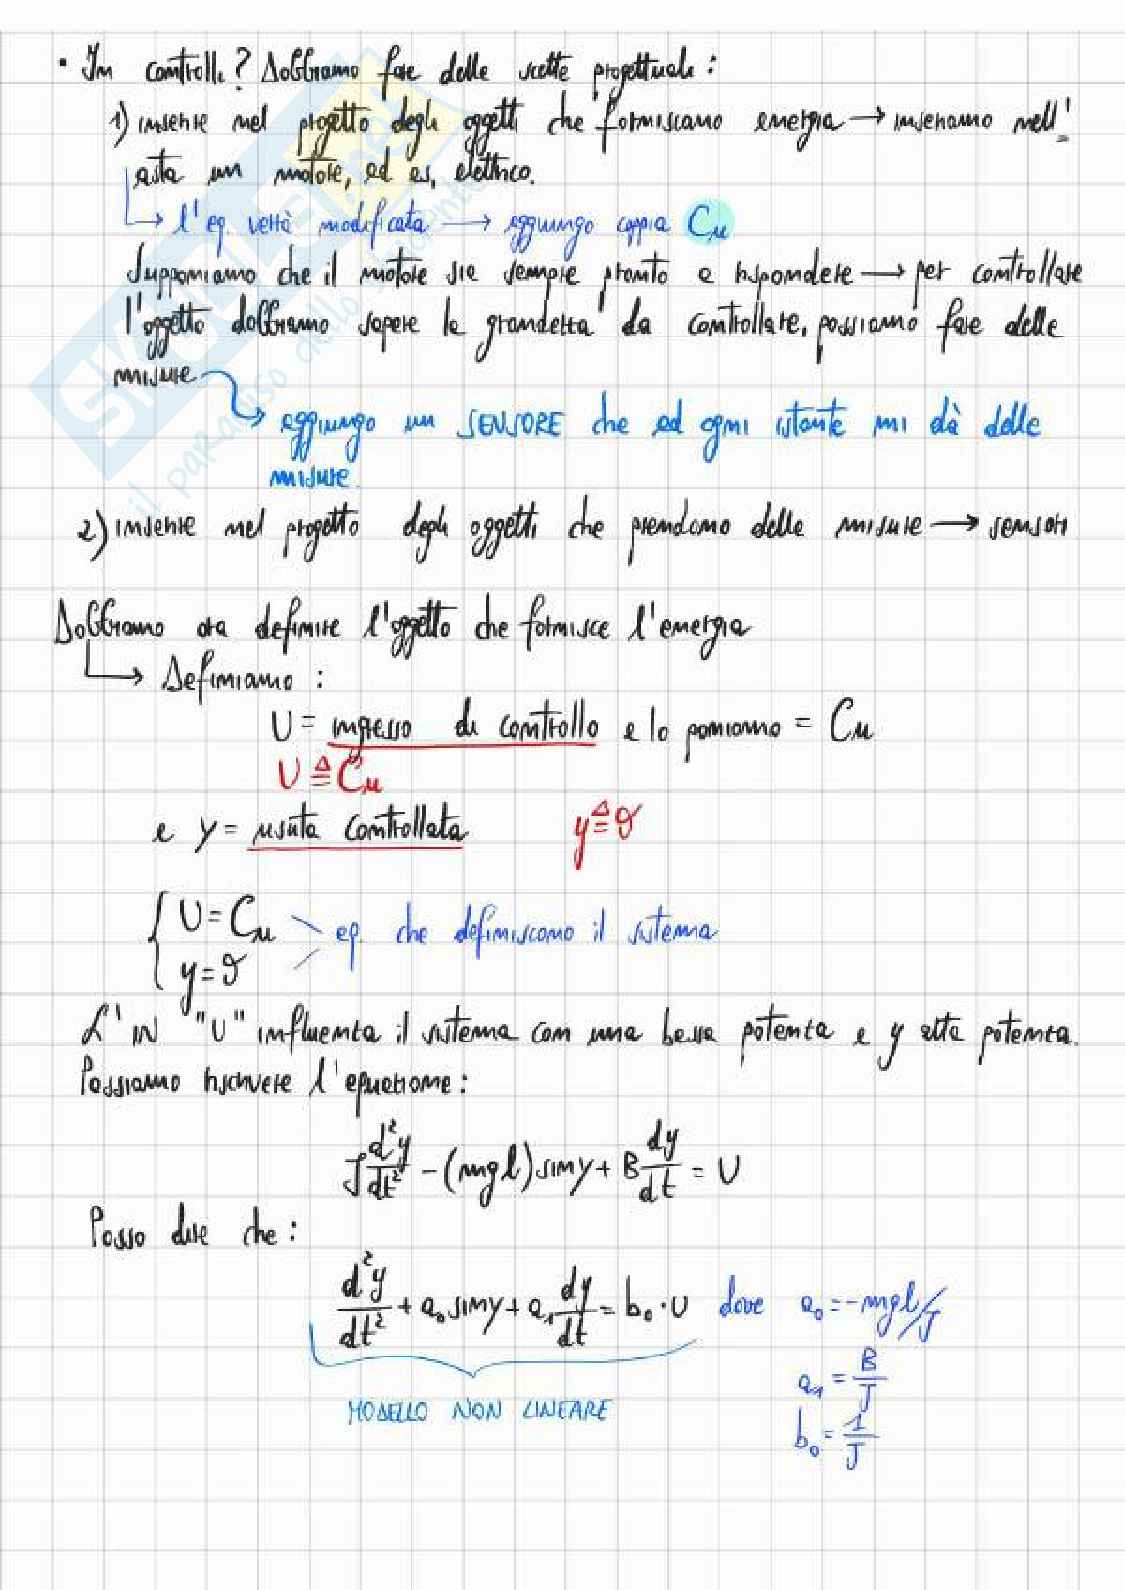 • In controlli? Dobbiamo fare delle scelte progettuali:
1) inserire nel progetto degli oggetti che forniscano energia → inseriamo nell'
asta un motore, ad es. elettrico.
↳ l'eq. verrà modificata → aggiungo coppia Cм
Supponiamo che il motore sia sempre pronto a rispondere → per controllare
l'oggetto dobbiamo sapere la grandezza da controllare, possiamo fare delle
misure
→ aggiungo un SENSORE che ad ogni istante mi dà delle
misure.
2) inserire nel progetto degli oggetti che prendono delle misure → sensori
Dobbiamo ora definire l'oggetto che fornisce l'energia
↳ Definiamo:
U = ingresso di controllo e lo poniamo = Cм
U ≜ Cм
e y = uscita controllata y ≜ ϑ
{ U = Cм
y = ϑ
eq. che definiscono il sistema
L'IN "U" influenza il sistema con una bassa potenza e y alta potenza.
Possiamo riscrivere l'equazione:
J d²y/dt² - (mgl) sin y + B dy/dt = U
Posso dire che:
d²y/dt² + a₀ sin y + a₁ dy/dt = b₀ · U dove a₀ = -mgl/J
a₁ = B/J
MODELLO NON LINEARE
b₀ = 1/J
SKUOLA.net
il paradiso dello studente